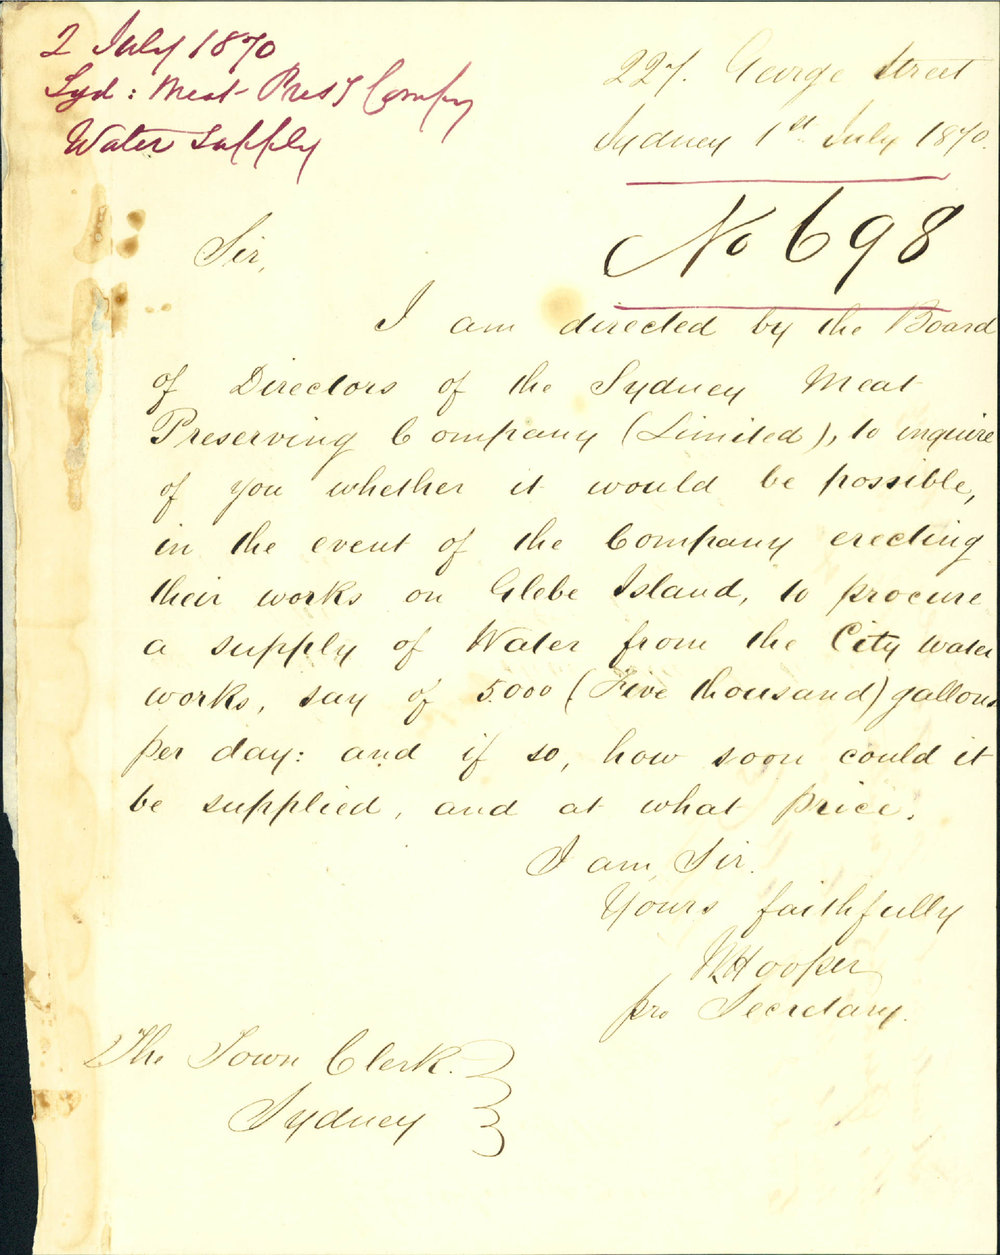 2 July 1870
Syd: Meat Pres'g Compy
Water Supply
227. George Street
Sydney 1st July 1870.
No 698
Sir,
I am directed by the Board
of Directors of the Sydney Meat
Preserving Company (Limited), to inquire
of you whether it would be possible,
in the event of the Company erecting
their works on Glebe Island, to procure
a supply of Water from the City water
works, say of 5.000 (Five thousand) gallons
per day: and if so, how soon could it
be supplied, and at what price.
I am, Sir.
Yours faithfully
Hooper
pro Secretary.
The Town Clerk.
Sydney